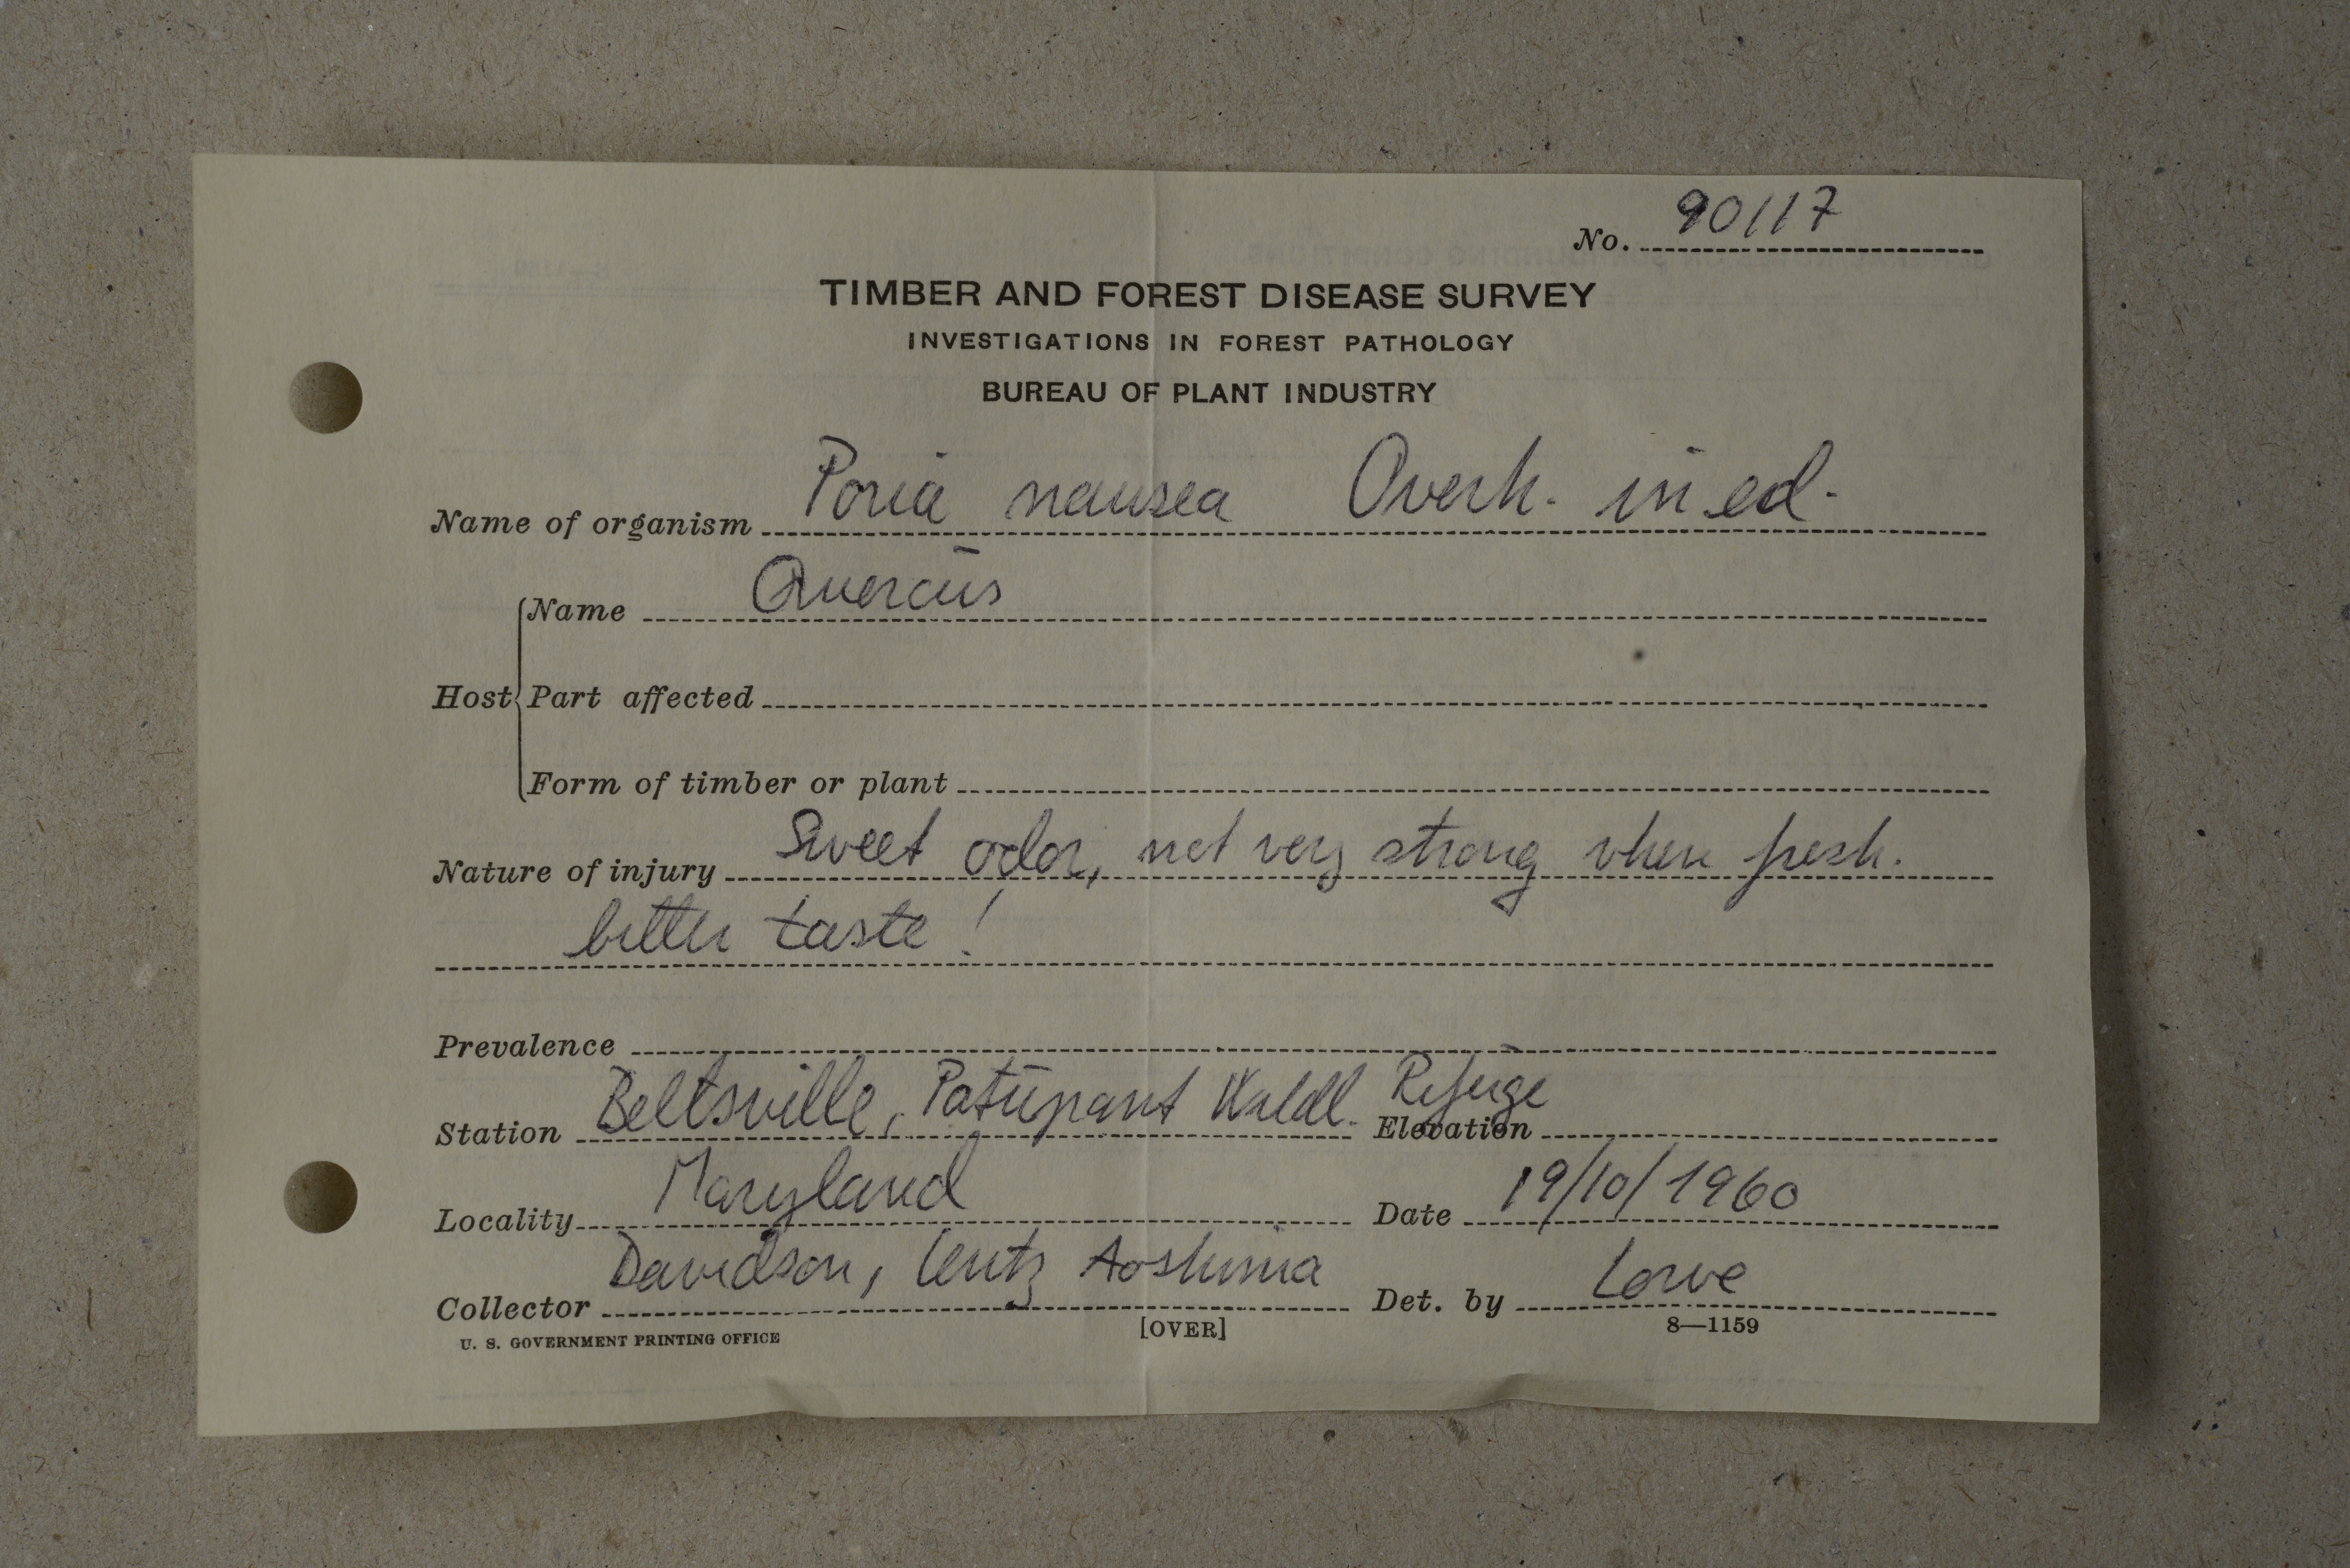 No. 90117
TIMBER AND FOREST DISEASE SURVEY
INVESTIGATIONS IN FOREST PATHOLOGY
BUREAU OF PLANT INDUSTRY
Name of organism Poria nausea Overh. in ed.
Host Name Quercus
Part affected
Form of timber or plant
Nature of injury Sweet odor, not very strong when fresh.
bitter taste!
Prevalence
Station Beltsville, Wildl. Refuge Elevation
Locality Maryland Date 19/10/1960
Collector Davidson, Lentz Aoshima Det. by Lowe
U. S. GOVERNMENT PRINTING OFFICE [OVER] 8—1159